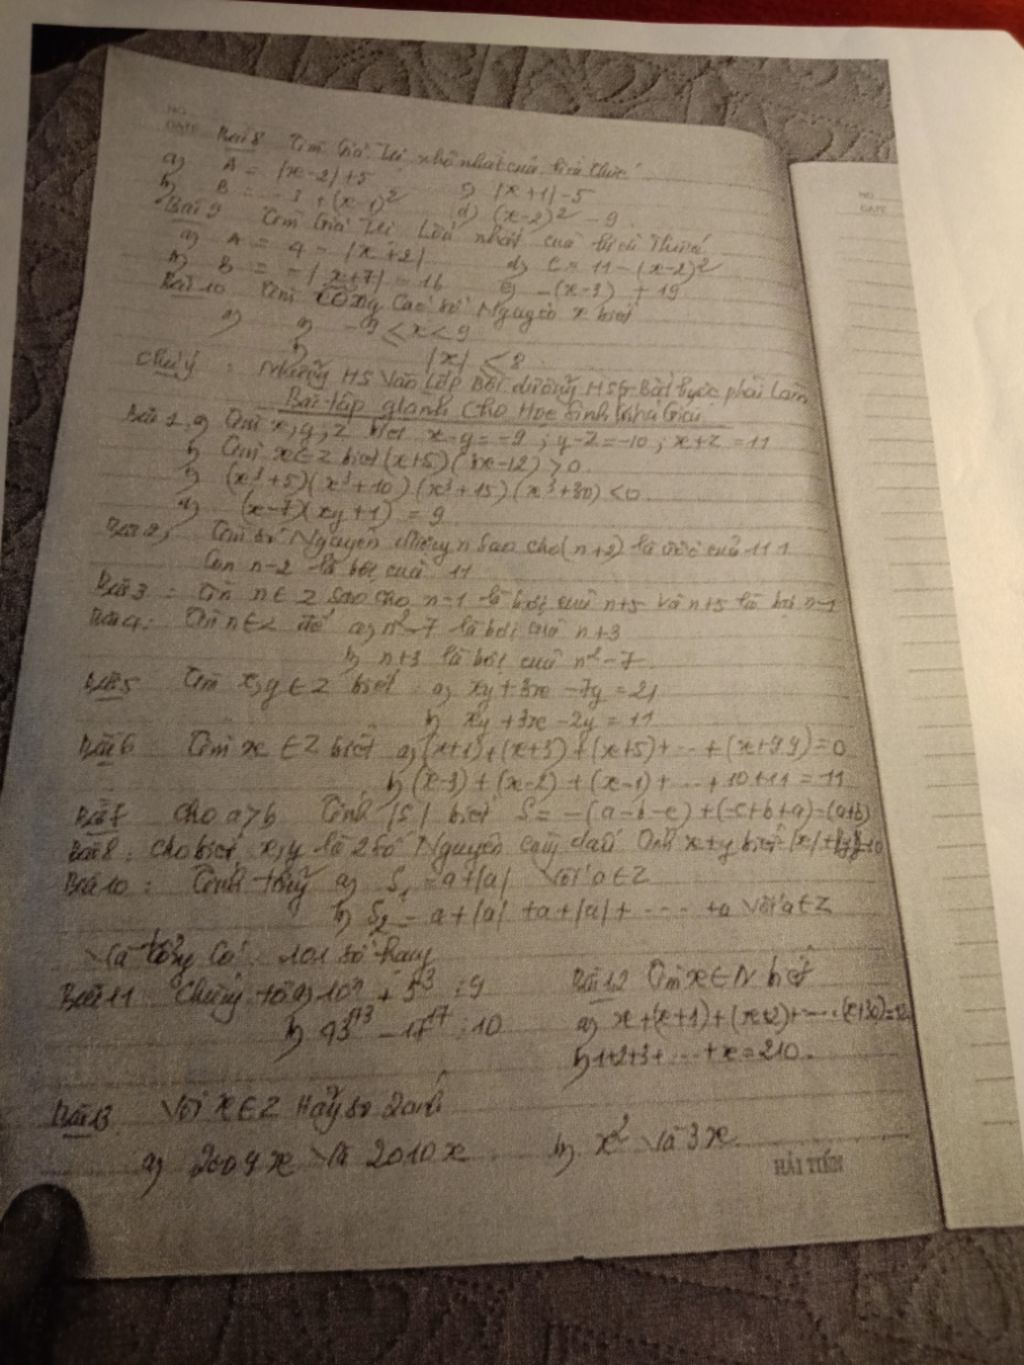 NO
DATE
Bài 8 Tìm Giá Trị nhỏ nhất của biểu thức
a) A = |x-2| + 5 c) |x+1| - 5
b) B = -3 + (x-1)² d) (x-2)² - 9
Bài 9 Tìm Giá Trị Lớn nhất của biểu thức
a) A = 4 - |x+2| d) C = 11 - (x-2)²
b) B = -|x+7| = 16 e) -(x-3) + 19
Bài 10 Tìm tổng các số Nguyên x biết
a) -9 ≤ x < 9
b) |x| ≤ 8
Chú ý : Những HS vào lớp Bồi dưỡng HSG Bắt buộc phải làm
Bài tập dành cho Học sinh Khá Giỏi
Bài 1 a) Tìm x, y, z biết x-y = -9 ; y-z = -10 ; x+z = 11
b) Tìm x ∈ Z biết (x+5)(3x-12) > 0
c) (x³+5)(x³+10)(x³+15)(x³+30) < 0
d) (x-7)(xy+1) = 9
Bài 2, Tìm số Nguyên dương n sao cho (n+2) là ước của 111
Còn n-2 là bội của 11
Bài 3 : Tìm n ∈ Z sao cho n-1 là bội của n+5 và n+5 là bội n-1
Bài 4 : Tìm n ∈ Z để a) n²-7 là bội của n+3
b) n+3 là bội của n²-7
Bài 5 Tìm x, y ∈ Z biết a) xy + 3x - 7y = 21
b) xy + 3x - 2y = 11
Bài 6 Tìm x ∈ Z biết a) (x+1) + (x+3) + (x+5) + ... + (x+99) = 0
b) (x-3) + (x-2) + (x-1) + ... + 10 + 11 = 11
Bài 7 Cho a > b Tính |S| biết S = -(a-b-c) + (-c+b+a) - (a+b)
Bài 8 : Cho biết x, y là 2 số Nguyên cùng dấu Tính x+y biết |x| + |y| = 10
Bài 10 : Tính tổng a) S₁ = a + |a| với a ∈ Z
b) S₂ = a + |a| + a + |a| + ... + a với a ∈ Z
và tổng có 101 số hạng
Bài 11 Chứng tỏ a) 10ⁿ + 5³ ⋮ 9
b) 43⁴³ - 17¹⁷ ⋮ 10
Bài 12 Tìm x ∈ N biết
a) x + (x+1) + (x+2) + ... (x+30) =
b) 1+2+3+ ... + x = 210.
Bài 13 Với x ∈ Z Hãy so sánh
a) 2009x và 2010x b) x² và 3x
HẢI TIẾN
NO
DATE